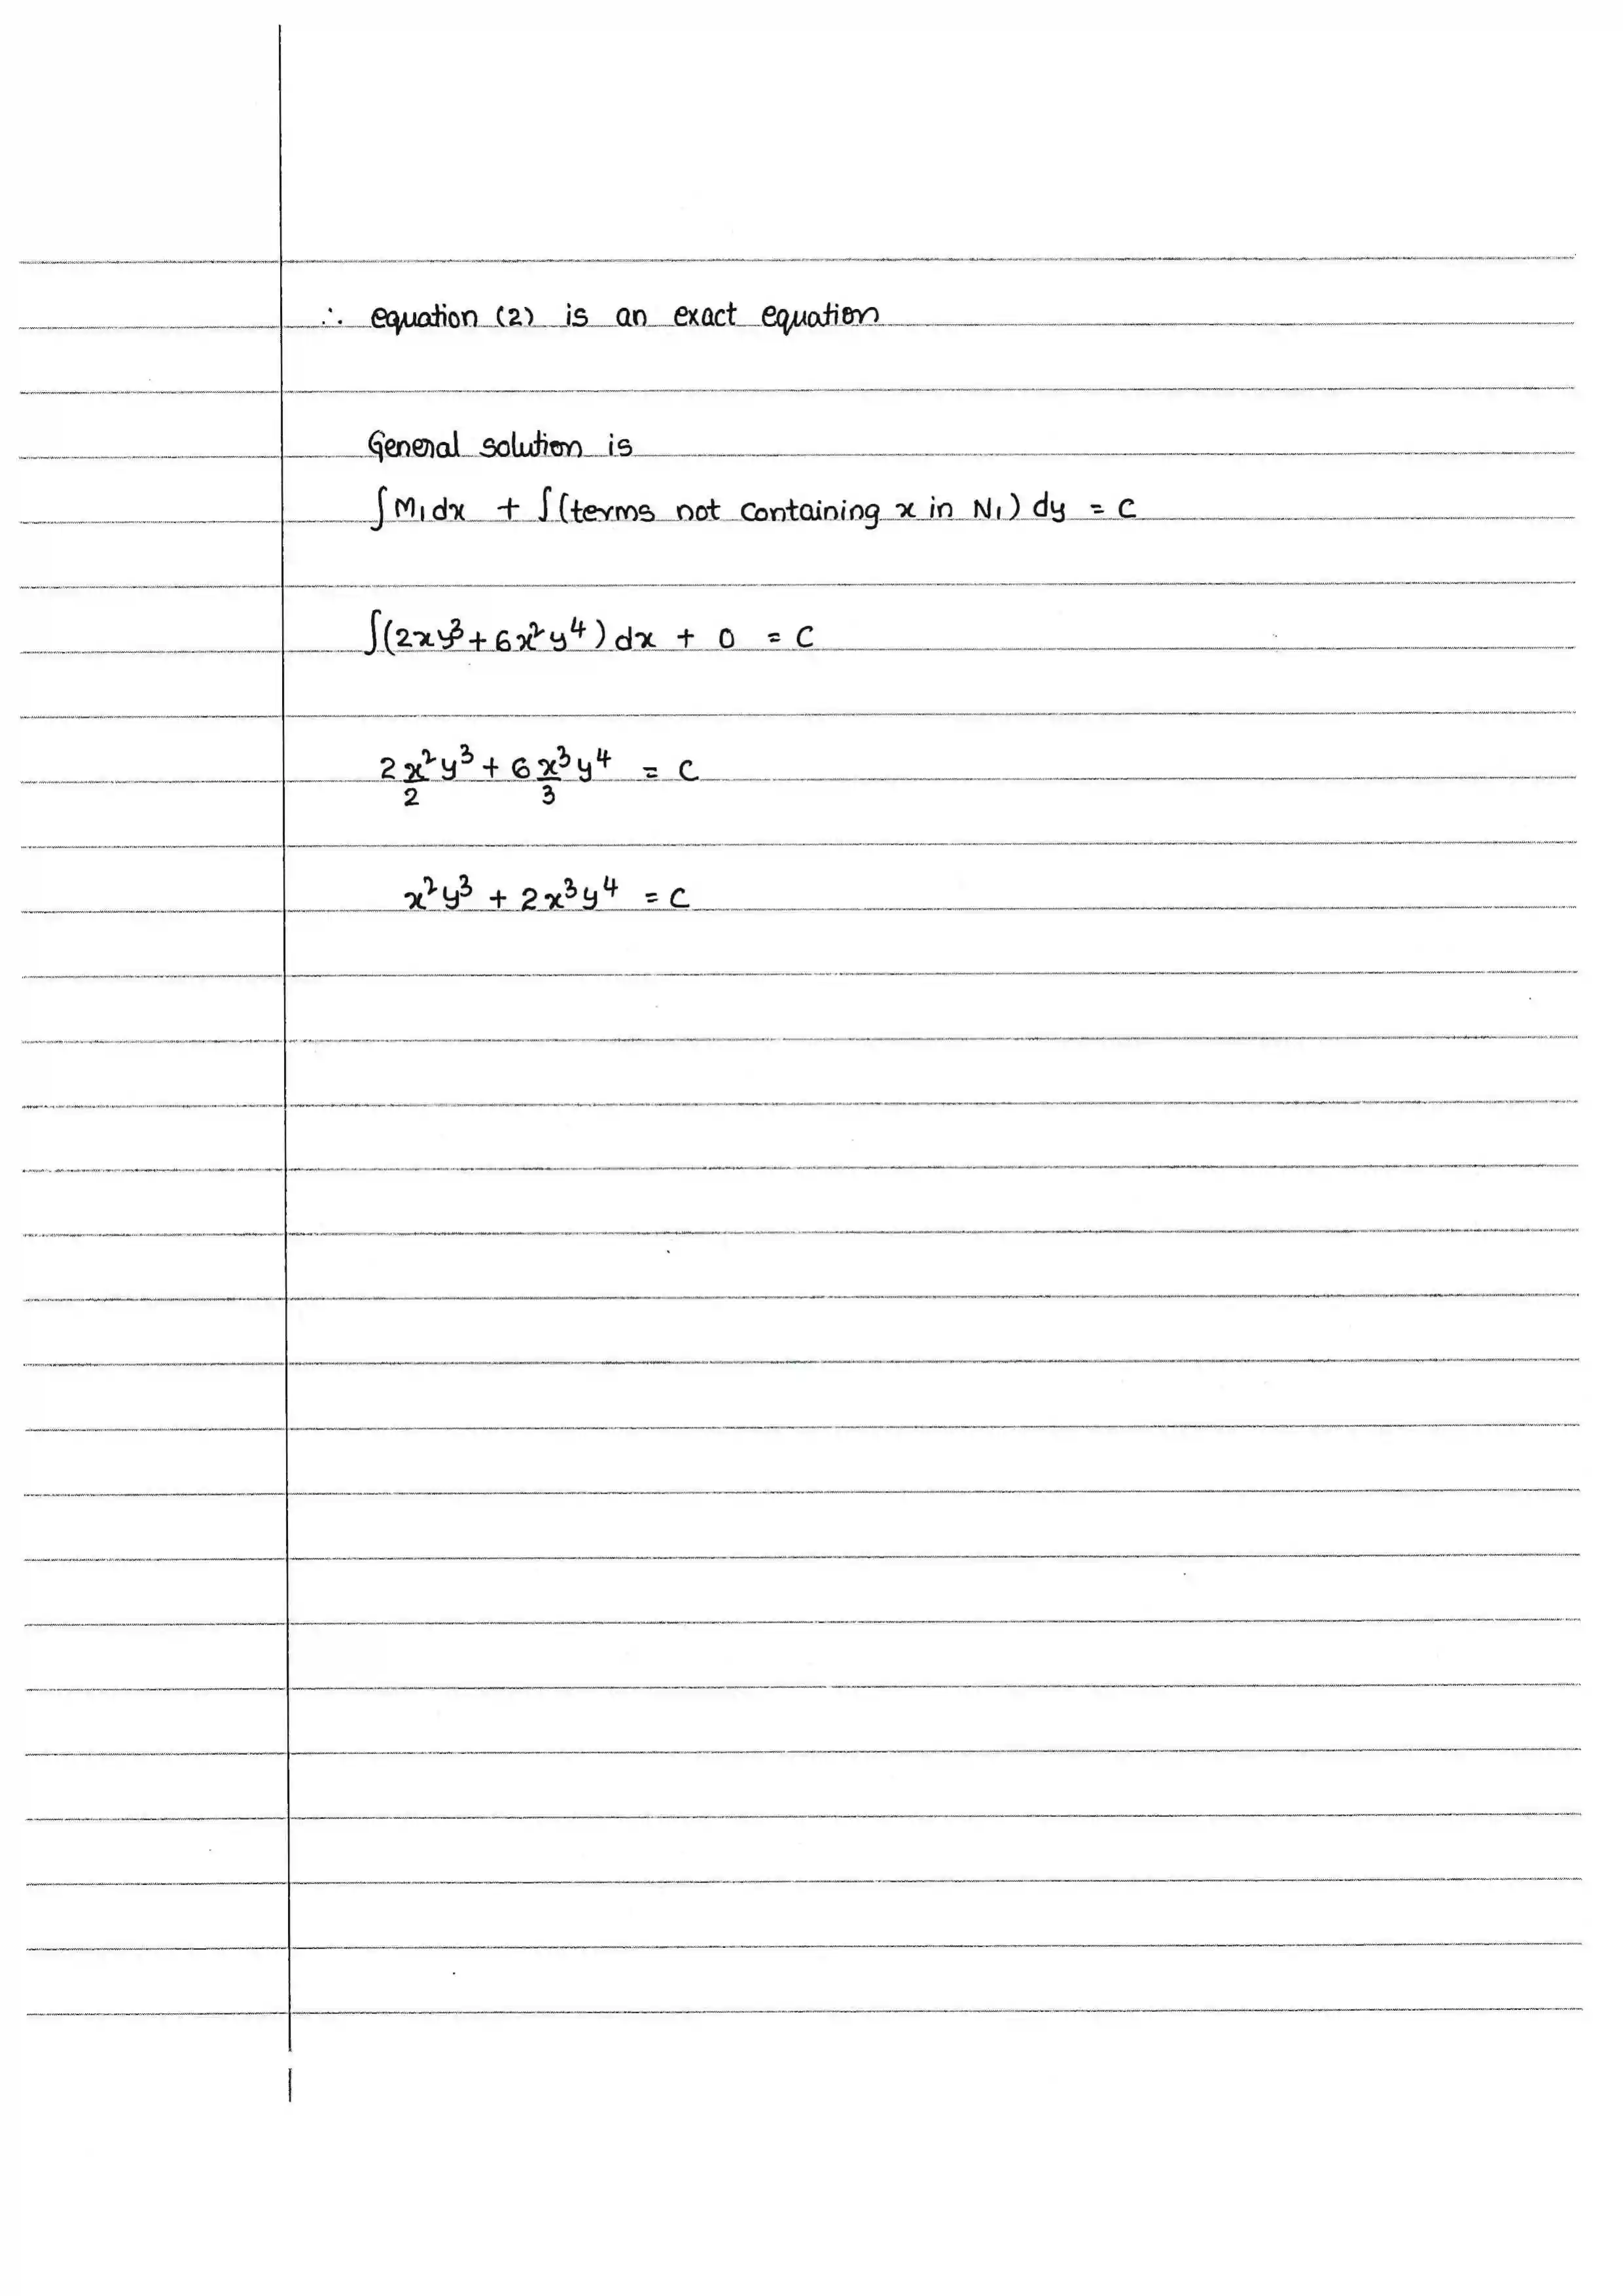 ∴ equation (2) is an exact equation
General solution is
∫M₁dx + ∫(terms not containing x in N₁) dy = C
∫(2xy³ + 6x²y⁴) dx + 0 = C
2 x²/2 y³ + 6 x³/3 y⁴ = C
x²y³ + 2x³y⁴ = C